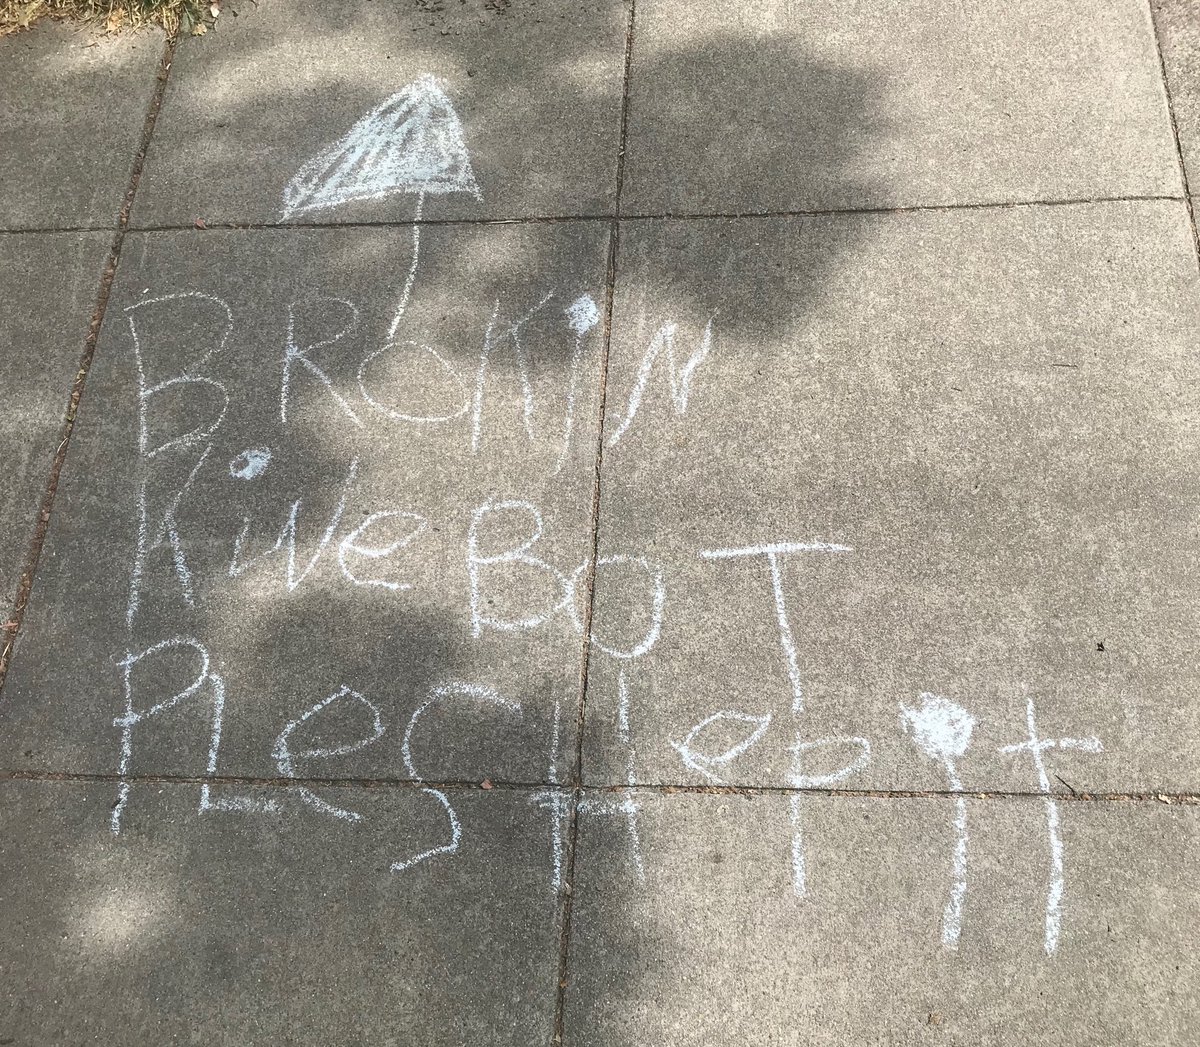 BROKiN
KiWe BOT
PLeS Hep it